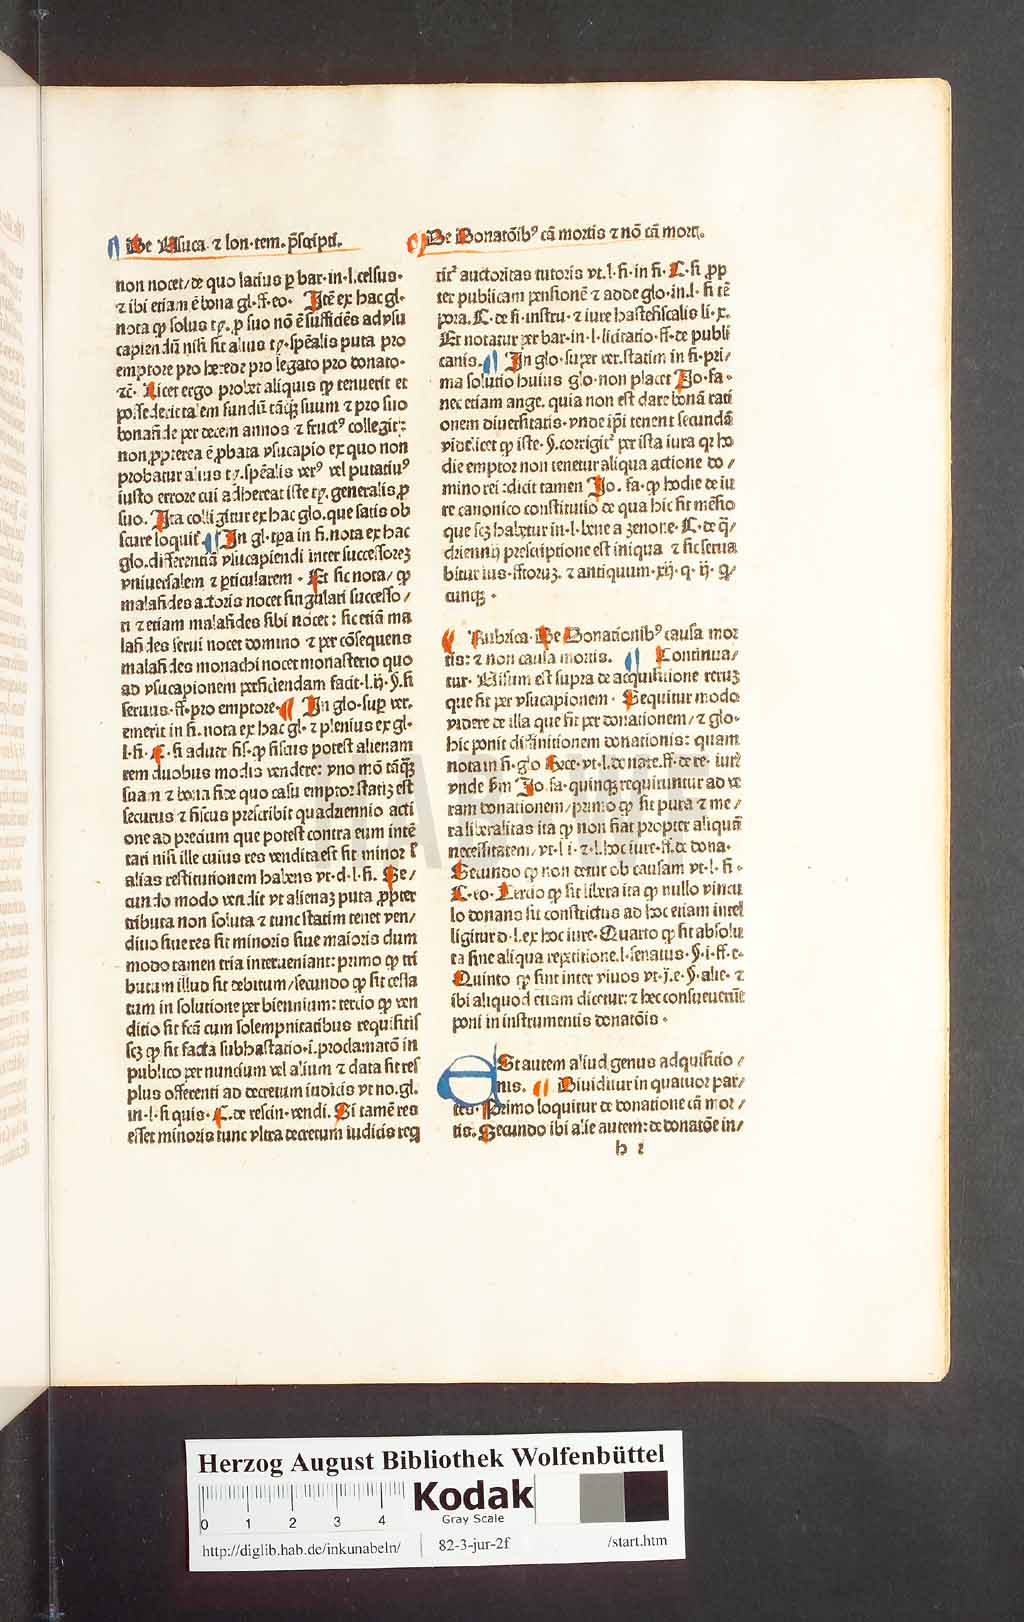 De Usuca ⁊ lon·tem·p̄scripti.
non nocet/de quo latius ꝑ bar·in·l·celsus·
⁊ ibi etiam ē bona gl·ff·eo· Itē ex hac gl·
nota ꝙ solus ty·p suo nō ē sufficiēs ad vsu
capiendū nisi sit alius ty·spēalis puta pro
emptore pro herede pro legato pro donato·
⁊c̄· Licet ergo probet aliquis ꝙ tenuerit et
possederit talem fundū tāꝗꝫ suum ⁊ pro suo
bonafide per decem annos ⁊ fructꝰ collegit:
non ꝓpterea ē ꝓbata vsucapio ex quo non
probatur alius ty·spēalis verꝰ vel putatiuꝰ
iusto errore cui adhereat iste ty·generalis ꝓ
suo. Ita colligitur ex hac glo.que satis ob
scure loquit᷑ In gl·tꝑa in fi.nota ex hac
glo.differentiā vsucapiendi inter successoreꝫ
vniuersalem ⁊ ꝑticularem· Et sic nota/ꝙ
malafides actoris nocet singulari successo/
ri ⁊ etiam malafides sibi nocet: sic etiā ma
lafides serui nocet domino ⁊ per cōsequens
malafides monachi nocet monasterio quo
ad vsucapionem perficiendam facit·l.ij·§.si
seruus·ff·pro emptore· In glo·suꝑ ver.
emerit in fi.nota ex hac gl·⁊ plenius ex gl·
l·fi·C·si aduer·fis·ꝙ fiscus potest alienam
rem duobus modis vendere: vno mō tāꝗꝫ
suam ⁊ bona fide quo casu emptor statiꝫ est
securus ⁊ fiscus prescribit quadriennio acti
one ad precium que potest contra eum intē
tari nisi ille cuius res vendita est sit minor ł
alias restitutionem habens vt·d·l·fi. Se/
cundo modo vendit vt alienaꝫ puta ꝓpter
tributa non soluta ⁊ tunc statim tenet ven/
ditio siue res sit minoris siue maioris dum
modo tamen tria interueniant: primo ꝙ tri
butum illud sit debitum/secundo ꝙ sit cessa
tum in solutione per biennium: tercio ꝙ ven
ditio sit fcā cum solempnitatibus requisitis
scꝫ ꝙ sit facta subhastatio·i.proclamatō in
publico per nuncium vel alium ⁊ data sit res
plus offerenti ad decretum iudicis vt no.gl.
in·l·si quis·C·de rescin·vendi. Si tamē res
esset minoris tunc vltra decretum iudicis req
De Donatōibꝰ cā mortis ⁊ nō cā mort.
rit᷑ auctoritas tutoris vt.l·fi·in fi·C·si ꝓp
ter publicam pensionē ⁊ adde glo·in.l·si tē
pora.C·de fi·instru·⁊ iure hastefiscalis li·x.
Et notatur per bar·in·l·licitatio·ff·de publi
canis. In glo·super ver.statim in fi·pri/
ma solutio huius glo·non placet Jo·fa·
nec etiam ange. quia non est dare bonā rati
onem diuersitatis·vnde ip̄i tenent secundā
videlicet ꝙ iste·§.corrigit᷑ per ista iura qꝛ ho
die emptor non tenetur aliqua actione do/
mino rei:dicit tamen Jo. fa·ꝙ hodie de iu
re canonico constitutio de qua hic fit mētio
que scꝫ habetur in·l·bene a zenone·C·de q̄/
driennij prescriptione est iniqua ⁊ sic serua
bitur ius·ffoꝛuꝫ. ⁊ antiquum·xij·q·ij·q̄/
cunqꝫ·
Rubrica·De Donationibꝰ causa mor
tis: ⁊ non causa mortis. Continua/
tur· Uisum est supra de acquisitione reruꝫ
que fit per vsucapionem· Sequitur modo
videre de illa que fit per donationem/⁊ glo·
hic ponit diffinitionem donationis: quam
nota in fi·glo Hec·vt·l·donate.ff·de re· iur᷑
vnde s̄m Jo·fa·quinqꝫ requiruntur ad ve
ram donationem/primo ꝙ sit pura ⁊ me/
ra liberalitas ita ꝙ non fiat propter aliquā
necessitatem/vt·l i·⁊·l·hoc iure·ff·de dona·
Secundo ꝙ non detur ob causam vt·l·fi·
C·eo· Tercio ꝙ sit libera ita ꝙ nullo vincu
lo donans sit constrictus ad hoc etiam intel
ligitur d·l·ex hoc iure· Quarto ꝙ sit absolu
ta sine aliqua repetitione.l·senatus·§·i·ff·e·
Quinto ꝙ sint inter viuos vt·j·e·§·alie·⁊
ibi aliquod etiam dicetur: ⁊ hec consueuerūt
poni in instrumentis donatōis·
ESt autem aliud genus adquisitio/
nis. Diuiditur in quatuor par/
tes· Primo loquitur de donatione cā mor/
tis. Secundo ibi alie autem: de donatōe in/
h ı
Herzog August Bibliothek Wolfenbüttel
0 1 2 3 4
Kodak
Gray Scale
http://diglib.hab.de/inkunabeln/ 82-3-jur-2f /start.htm